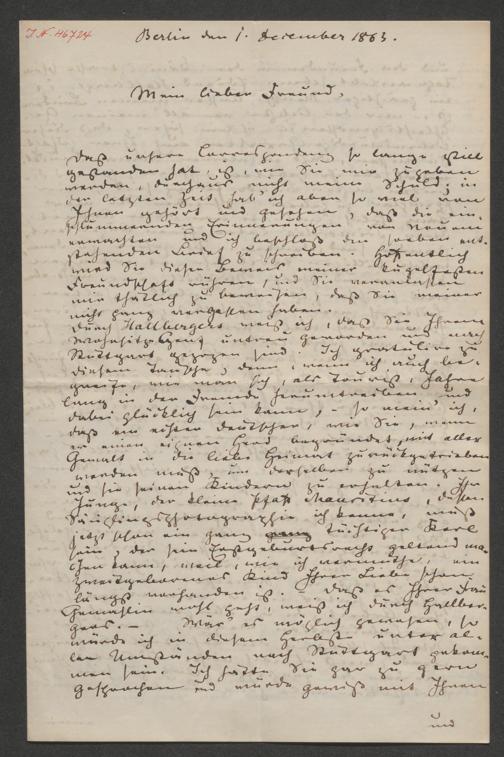 J.N. 46724
Berlin den 1. December 1863.
Mein lieber Freund.
Daß unsere Correspondenz so lange still
gestanden hat, ist, wie Sie mir zugeben
werden, durchaus nicht meine Schuld; in
der letzten Zeit hab ich aber so viel von
Ihnen gehört und gesehen, daß die ein-
schlummernden Erinnerungen von Neuem
erwachten und ich beschloß den soeben ent-
stehenden Brief zu schreiben. Hoffentlich
wird Sie dieser Beweis meiner kugelfesten
Freundschaft rühren, und Sie veranlassen
mir thätlich zu beweisen, daß Sie meiner
nicht ganz vergessen haben.
Durch Hallbergers weiß ich, daß Sie Ihrem
Wohnsitze untreu geworden und nach
Stuttgart gezogen sind. Ich gratulire zu
diesem Tausche, denn, wenn ich auch be-
greife, wie man sich, als Tourist, Jahre
lang in der Fremde herumtreiben und
dabei glücklich sein kann, – so mein' ich,
daß ein echter Deutscher, wie Sie, wenn
er einen eignen Herd begründet, mit aller
Gewalt in die liebe Heimat zurückgetrieben
werden muß, um derselben zu nützen
und sie seinen Kindern zu erhalten. Ihr
Junge, der kleine Mauritius, dessen
Säuglingsphotographie ich kenne, muß
jetzt schon ein ganz tüchtiger Kerl
sein, der sein Erstgeburtsrecht geltend ma-
chen kann, weil, wie ich vermuthe, ein
zweitgeborenes Kind Ihrer Liebe schon
längst vorhanden ist. Daß es Ihrer Frau
Gemahlin wohl geht, weiß ich durch Hallber-
gers. – Wär' es möglich gewesen, so
würde ich in diesem Herbste unter al-
len Umständen nach Stuttgart gekom-
men sein. Ich hätte Sie gar zu gern
gesprochen und würde gewiß mit Ihnen
und